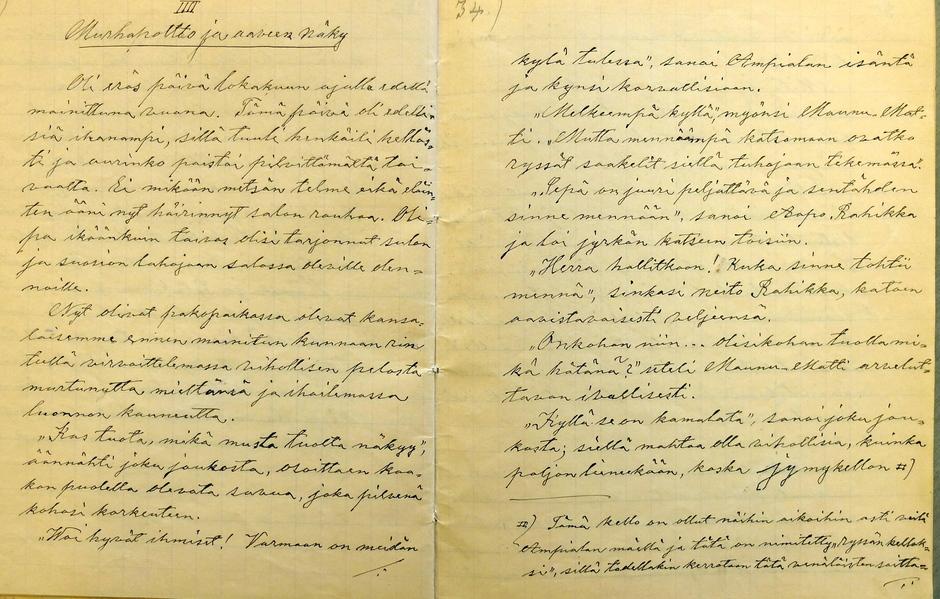 IIII
Murhapoltto ja aaveen näky
Oli eräs päivä lokakuun ajalla edellä
mainittuna vuona. Tämä päivä oli edelli-
siä ihanampi, sillä tuuli henkäili
ti ja aurinko paistoi pilvittämältä tai-
vaalta. Ei mikään metsän telme eikä eläin-
ten ääni nyt häirinnyt salon rauhaa. Oli-
pa ikäänkuin taivas olisi tarjonnut sulon
ja suosion lahojaan salossa oleville olen-
noille.
Nyt olivat pakopaikassa olevat kansa-
laisemme ennen mainitun kunnaan rin
teellä virvoittelemassa vihollisen pelosta
murtunutta mieltänsä ja ihailemassa
luonnon kauneutta.
„Kas tuota, mikä musta tuolta näkyy",
äännähti joku joukosta, osoittaen kaa-
kon puolella olevata savua, joka pilvenä
kohosi korkeuteen.
„Woi hyvät ihmiset! Varmaan on meidän
34.)
kylä tulessa", sanoi Ampialan isäntä
ja kynsi korvallisiaan.
„Melkeempä kyllä", myönsi Maunu-Mat-
ti. „Mutta mennäämpä katsomaan ovatko
ryssät saakelit siellä tuhojaan tekemässä".
„Sepä on juuri peljättävä ja sentähden
sinne mennään", sanoi Aapo Rahikka
ja loi jyrkän katseen toisiin.
„Herra hallitkoon! Kuka sinne tohtii
mennä", sinkasi neito Rahikka, katsoen
aavistavaisesti veljeensä.
„Onkohan niin... olisikohan tuolla mi-
kä hätänä?" uteli Maunu-Matti arvelut-
tavan ivallisesti.
„Kyllä se on kamalata", sanoi joku jou-
kosta; siellä mahtaa olla vihollisia, kuinka
paljon lieneekään, koska jymykellon #)
#) Tämä kello on ollut näihin aikoihin asti vielä
Ampialan mäellä ja tätä on nimitetty „ryssän kellok-
si", sillä todellakin kerrotaan tätä venäläisten soitta=